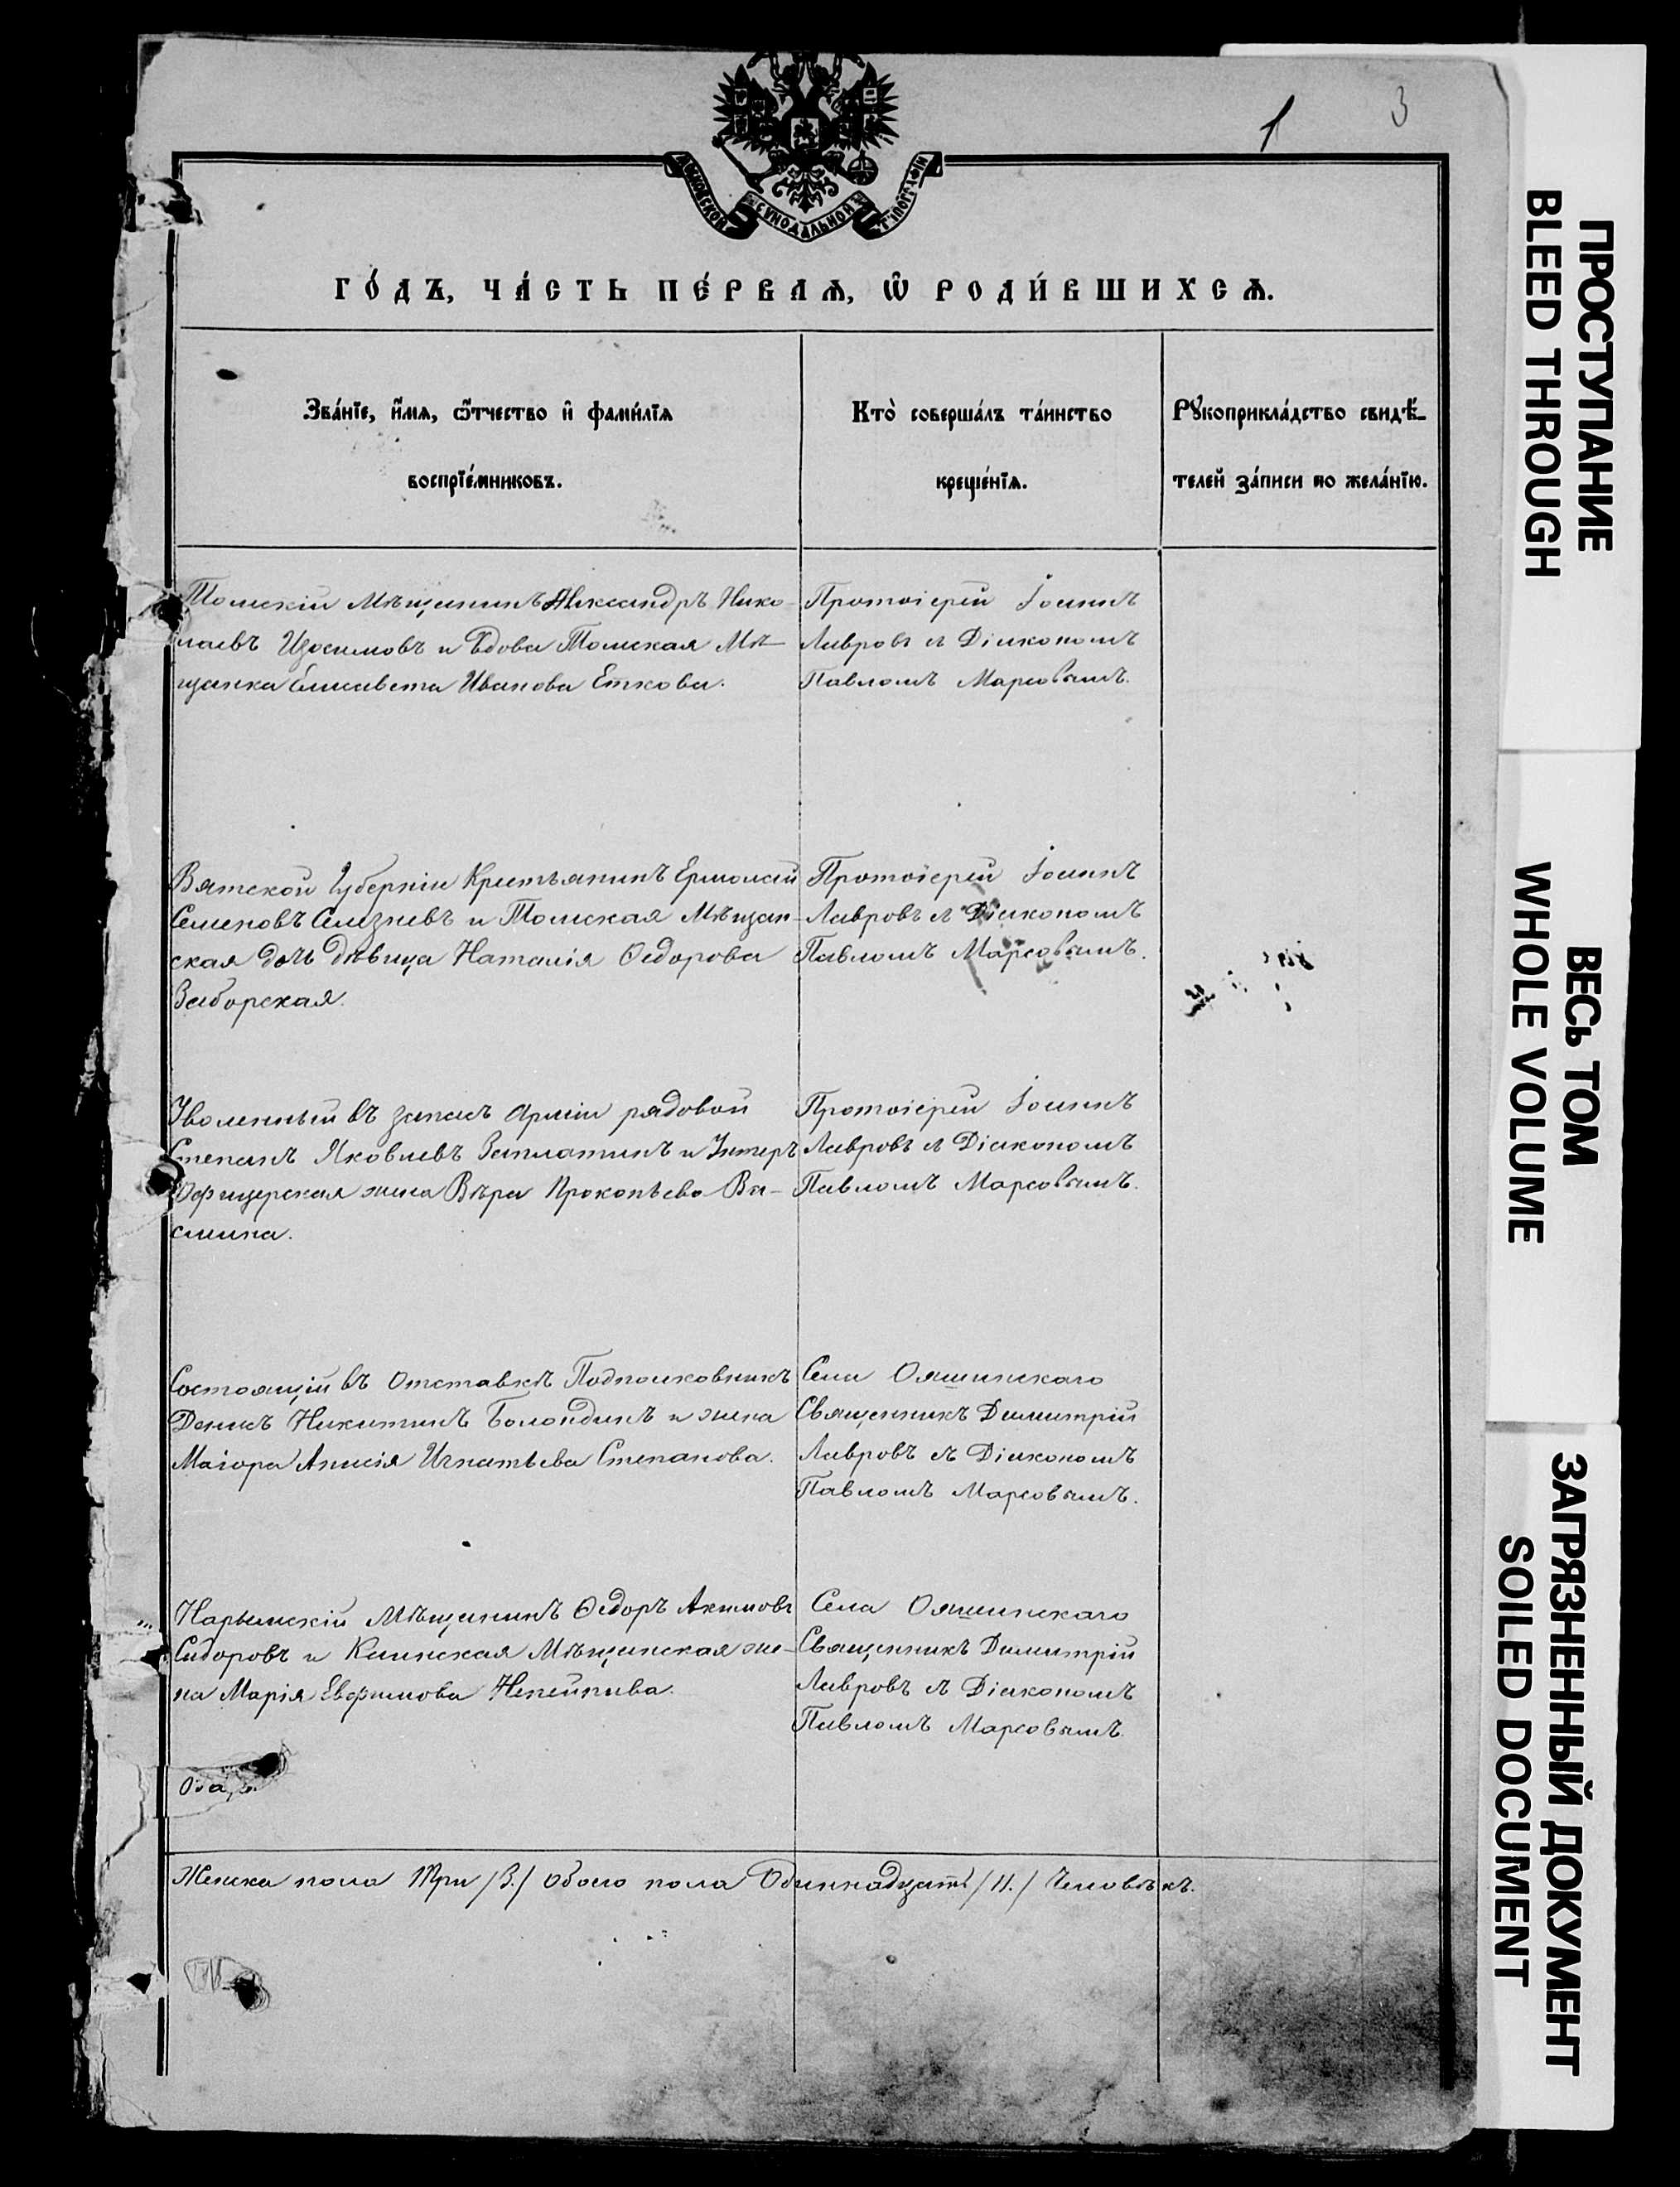 1 3
МОСКОВСКОЙ СѴНОДАЛЬНОЙ ТѴПОГРАФІИ
ГО́ДЪ, ЧА́СТЬ ПЕ́РВАѦ, Ѽ РОДИ́ВШИХСѦ.
Зва́нїе, и҆́мѧ, ѻ҆́тчество и҆ фами́лїѧ
воспрїе́мниковъ.
Кто̀ соверша́лъ та́инство
креще́нїѧ.
Рꙋкоприкла́дство свидѣ́-
телей за́писи по жела́нїю.
Томскій Мѣщанинъ Александръ Нико-
лаевъ Изосимовъ и Вдова Томская Мѣ-
щанка Елисавета Иванова Еткова.
Протоіерей Іоаннъ
Лавровъ съ Діакономъ
Павломъ Марсовымъ.
Вятской Губерніи Крестьянинъ Ермолай
Семеновъ Селезневъ и Томская Мѣщан-
ская дочь дѣвица Наталія Ѳедорова
Заборская.
Протоіерей Іоаннъ
Лавровъ съ Діакономъ
Павломъ Марсовымъ.
Уволенный въ запасъ Арміи рядовой
Степанъ Яковлевъ Заплатинъ и Унтеръ
Офицерская жена Вѣра Прокопьева Ва-
сина.
Протоіерей Іоаннъ
Лавровъ съ Діакономъ
Павломъ Марсовымъ.
Состоящій въ отставкѣ Подполковникъ
Денисъ Никитинъ Болондинъ и жена
Маіора Анисія Игнатьева Степанова.
Села Ояшинскаго
Священникъ Димитрій
Лавровъ съ Діакономъ
Павломъ Марсовымъ.
Нарымскій Мѣщанинъ Ѳедоръ Акимовъ
Сидоровъ и Каинская Мѣщанская же-
на Марія Евфимова Непейпива.
Села Ояшинскаго
Священникъ Димитрій
Лавровъ съ Діакономъ
Павломъ Марсовымъ.
Женска пола Три /3./ Обоего пола Одиннадцать /11./ Человѣкъ.
ПРОСТУПАНИЕ
BLEED THROUGH
ВЕСЬ ТОМ
WHOLE VOLUME
ЗАГРЯЗНЕННЫЙ ДОКУМЕНТ
SOILED DOCUMENT